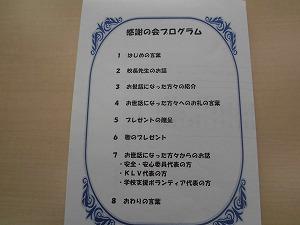 感謝の会プログラム
1 はじめの言葉
2 校長先生のお話
3 お世話になった方々の紹介
4 お世話になった方々へのお礼の言葉
5 プレゼントの贈呈
6 歌のプレゼント
7 お世話になった方々からのお話
・安全・安心委員代表の方
・KLV代表の方
・学校支援ボランティア代表の方
8 おわりの言葉